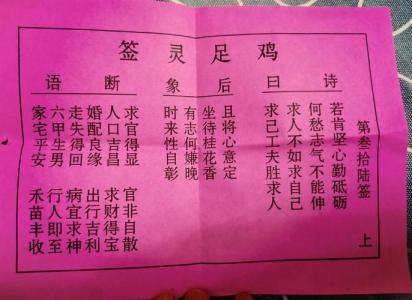 鸡足灵签
第叁拾陆签 上
诗曰
若肯坚心勤砥砺
何愁志气不能伸
求人不如求自己
求己工夫胜求人
后象
且将心意定
坐待桂花香
有志何嫌晚
时来性自彰
断语
求官得显 官非自散
人口吉昌 求财得宝
婚配良缘 出行吉利
走失得回 病宜求神
六甲生男 行人即至
家宅平安 禾苗丰收